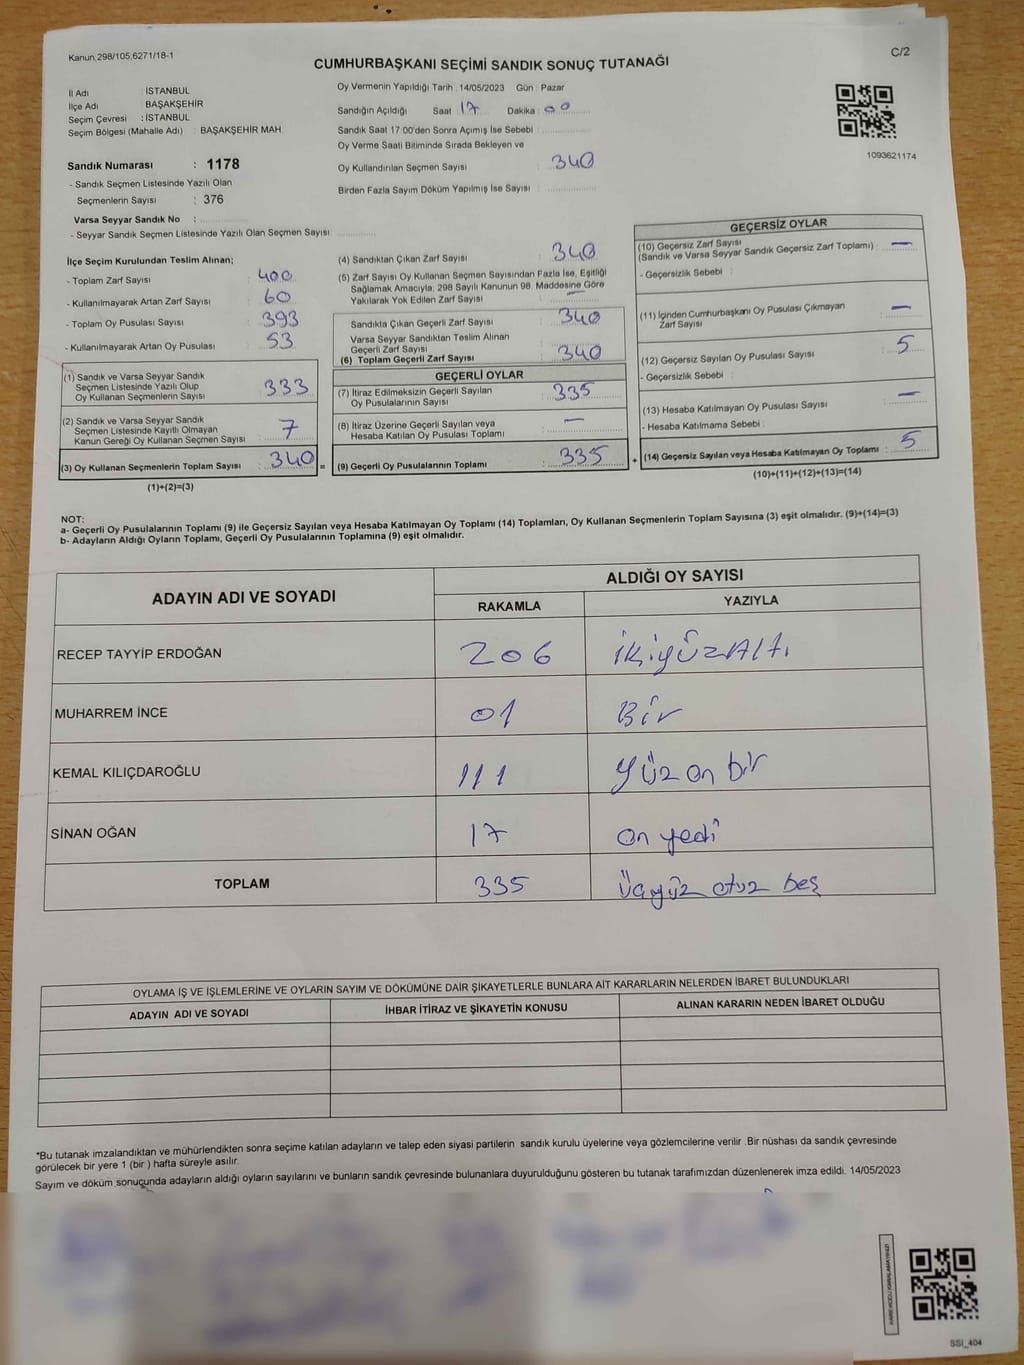 Kanun,298/105,6271/18-1
C/2
CUMHURBAŞKANI SEÇİMİ SANDIK SONUÇ TUTANAĞI
İl Adı : İSTANBUL
İlçe Adı : BAŞAKŞEHİR
Seçim Çevresi : İSTANBUL
Seçim Bölgesi (Mahalle Adı) : BAŞAKŞEHİR MAH.
Sandık Numarası : 1178
- Sandık Seçmen Listesinde Yazılı Olan
Seçmenlerin Sayısı : 376
Varsa Seyyar Sandık No :
- Seyyar Sandık Seçmen Listesinde Yazılı Olan Seçmen Sayısı:
Oy Vermenin Yapıldığı Tarih :14/05/2023 Gün : Pazar
Sandığın Açıldığı Saat : 17 Dakika : 00
Sandık Saat 17:00'den Sonra Açımış İse Sebebi :
Oy Verme Saati Bitiminde Sırada Bekleyen ve
Oy Kullandırılan Seçmen Sayısı : 340
Birden Fazla Sayım Döküm Yapılmış İse Sayısı :
1093621174
İlçe Seçim Kurulundan Teslim Alınan;
- Toplam Zarf Sayısı : 400
- Kullanılmayarak Artan Zarf Sayısı : 60
- Toplam Oy Pusulası Sayısı : 393
- Kullanılmayarak Artan Oy Pusulası : 53
(1) Sandık ve Varsa Seyyar Sandık
Seçmen Listesinde Yazılı Olup
Oy Kullanan Seçmenlerin Sayısı : 333
(2) Sandık ve Varsa Seyyar Sandık
Seçmen Listesinde Kayıtlı Olmayan
Kanun Gereği Oy Kullanan Seçmen Sayısı : 7
(3) Oy Kullanan Seçmenlerin Toplam Sayısı : 340 =
(1)+(2)=(3)
(4) Sandıktan Çıkan Zarf Sayısı : 340
(5) Zarf Sayısı Oy Kullanan Seçmen Sayısından Fazla İse, Eşitliği
Sağlamak Amacıyla; 298 Sayılı Kanunun 98. Maddesine Göre
Yakılarak Yok Edilen Zarf Sayısı : —
Sandıkta Çıkan Geçerli Zarf Sayısı : 340
Varsa Seyyar Sandıktan Teslim Alınan
Geçerli Zarf Sayısı
(6) Toplam Geçerli Zarf Sayısı : 340
GEÇERLİ OYLAR
(7) İtiraz Edilmeksizin Geçerli Sayılan
Oy Pusulalarının Sayısı : 335
(8) İtiraz Üzerine Geçerli Sayılan veya
Hesaba Katılan Oy Pusulası Toplamı : —
(9) Geçerli Oy Pusulalarının Toplamı : 335 +
GEÇERSİZ OYLAR
(10) Geçersiz Zarf Sayısı
(Sandık ve Varsa Seyyar Sandık Geçersiz Zarf Toplamı) : —
- Geçersizlik Sebebi :
(11) İçinden Cumhurbaşkanı Oy Pusulası Çıkmayan
Zarf Sayısı : —
(12) Geçersiz Sayılan Oy Pusulası Sayısı : 5
- Geçersizlik Sebebi :
(13) Hesaba Katılmayan Oy Pusulası Sayısı : —
- Hesaba Katılmama Sebebi :
(14) Geçersiz Sayılan veya Hesaba Katılmayan Oy Toplamı : 5
(10)+(11)+(12)+(13)=(14)
NOT:
a- Geçerli Oy Pusulalarının Toplamı (9) ile Geçersiz Sayılan veya Hesaba Katılmayan Oy Toplamı (14) Toplamları, Oy Kullanan Seçmenlerin Toplam Sayısına (3) eşit olmalıdır. (9)+(14)=(3)
b- Adayların Aldığı Oyların Toplamı, Geçerli Oy Pusulalarının Toplamına (9) eşit olmalıdır.
ADAYIN ADI VE SOYADI
ALDIĞI OY SAYISI
RAKAMLA YAZIYLA
RECEP TAYYİP ERDOĞAN 206 İkiyüzAltı
MUHARREM İNCE 01 Bir
KEMAL KILIÇDAROĞLU 111 Yüz on bir
SİNAN OĞAN 17 on yedi
TOPLAM 335 üçyüz otuz beş
OYLAMA İŞ VE İŞLEMLERİNE VE OYLARIN SAYIM VE DÖKÜMÜNE DAİR ŞİKAYETLERLE BUNLARA AİT KARARLARIN NELERDEN İBARET BULUNDUKLARI
ADAYIN ADI VE SOYADI İHBAR İTİRAZ VE ŞİKAYETİN KONUSU ALINAN KARARIN NEDEN İBARET OLDUĞU
*Bu tutanak imzalandıktan ve mühürlendikten sonra seçime katılan adayların ve talep eden siyasi partilerin sandık kurulu üyelerine veya gözlemcilerine verilir .Bir nüshası da sandık çevresinde
görülecek bir yere 1 (bir ) hafta süreyle asılır.
Sayım ve döküm sonucunda adayların aldığı oyların sayılarını ve bunların sandık çevresinde bulunanlara duyurulduğunu gösteren bu tutanak tarafımızdan düzenlenerek imza edildi. 14/05/2023
KARE KODU KARALAMAYINIZ!
SSI_404